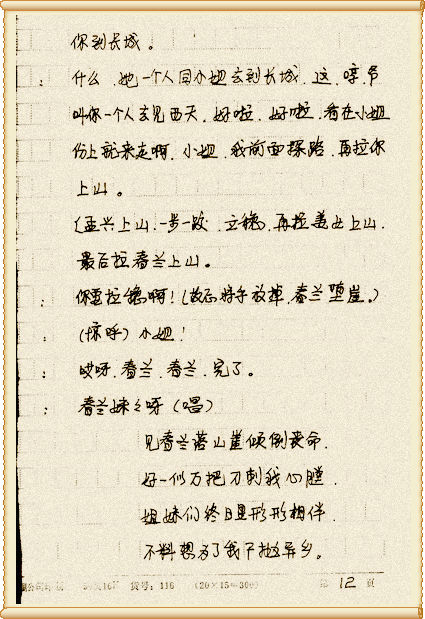 你到长城。
: 什么,她一个人同小姐去到长城,这,哼,爷
叫你一个人去见西天,好啦,好啦,看在小姐
份上就来走啊,小姐,我前面探路,再拉你
上山。
(孟兴上山,一步一跌,立稳,再拉姜女上山,
最后拉春兰上山。
: 你要拉稳啊!(故意将手放掉,春兰堕崖。)
: (惊呼)小姐!
: 哎呀,春兰,春兰,完了。
: 春兰妹々呀(唱)
见春兰落山崖倾倒丧命,
好一似万把刀刺我心膛,
姐妹们终日里形形相伴,
不料想为了我下抛异乡。
货号:116 (20×15=300) 第 12 页